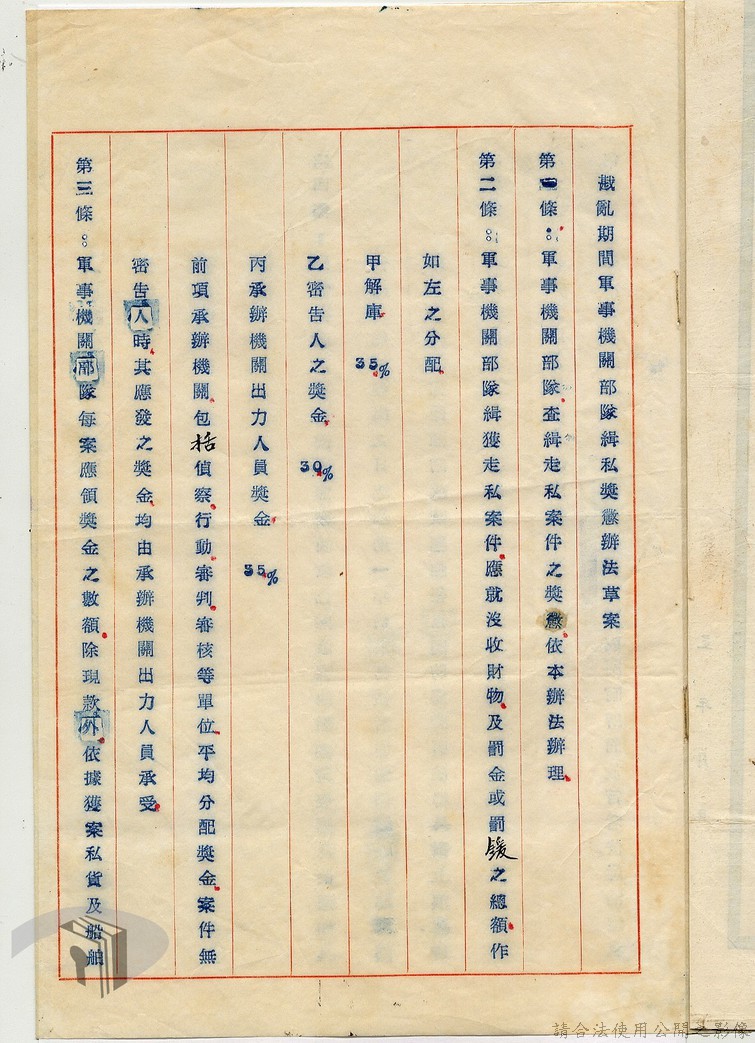 戡亂期間軍事機關部隊緝私獎懲辦法草案
第一條：軍事機關部隊查緝走私案件之獎懲依本辦法辦理
第二條：軍事機關部隊緝獲走私案件應就沒收財物及罰金或罰鍰之總額作
如左之分配
甲解庫 35%
乙密告人之獎金 30%
丙承辦機關出力人員獎金 35%
前項承辦機關包括偵察行動審判審核等單位平均分配獎金案件無
密告人時其應發之獎金均由承辦機關出力人員承受
第三條：軍事機關部隊每案應領獎金之數額除現款外依據獲案私貨及船舶
請合法使用公開之影像